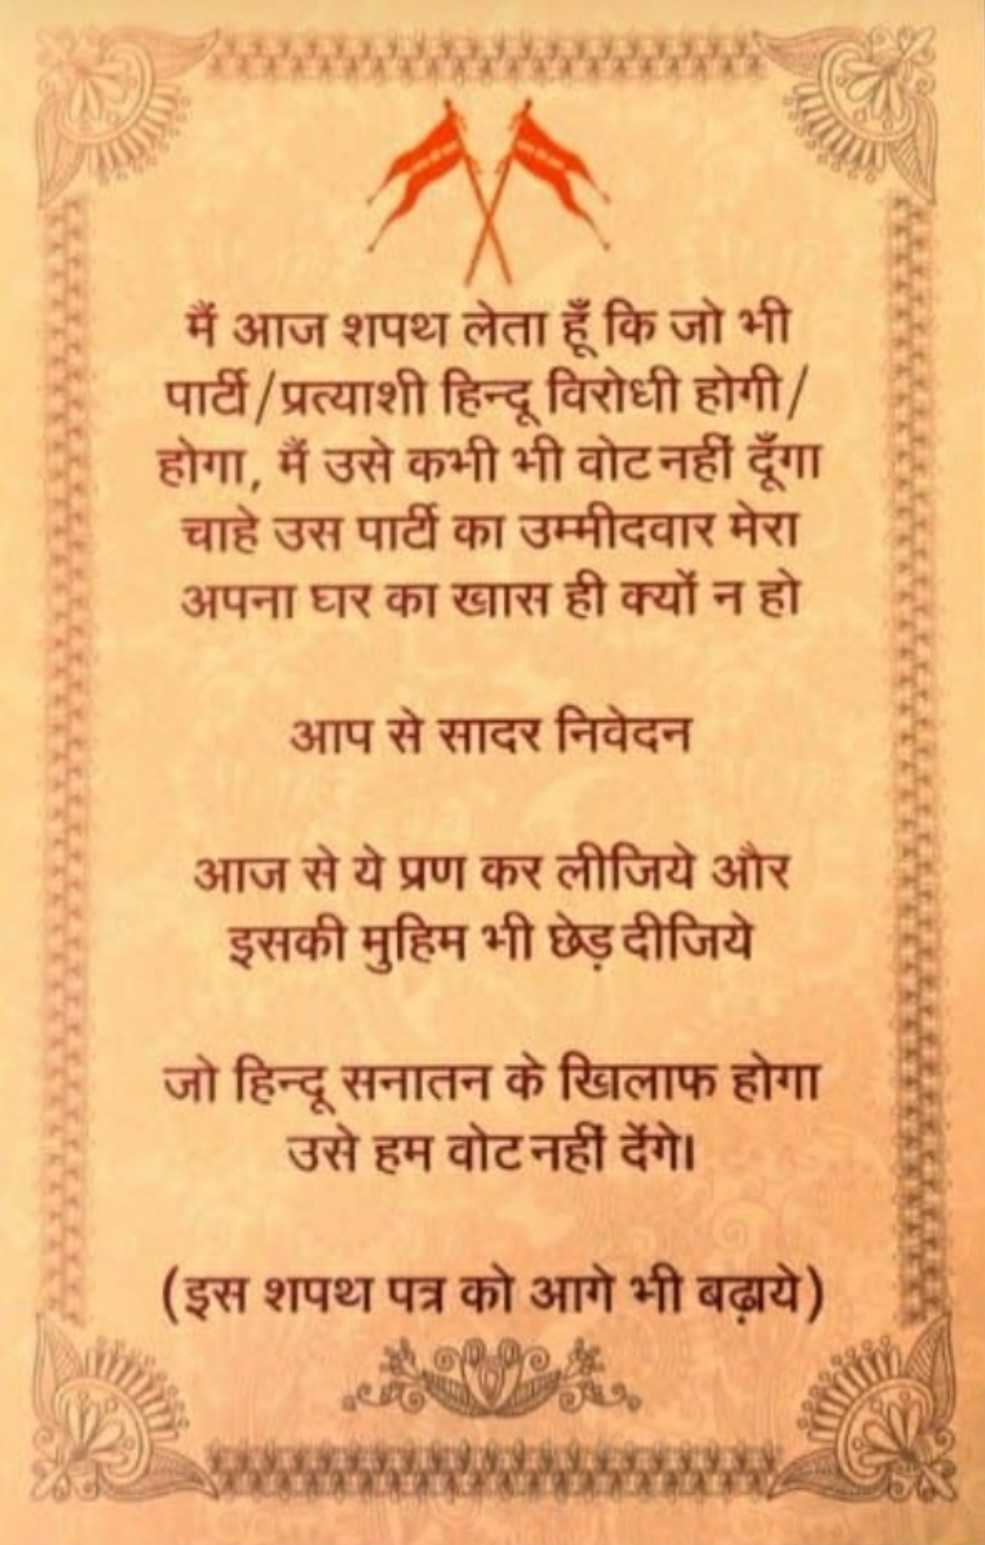 मैं आज शपथ लेता हूँ कि जो भी
पार्टी/प्रत्याशी हिन्दू विरोधी होगी/
होगा, मैं उसे कभी भी वोट नहीं दूँगा
चाहे उस पार्टी का उम्मीदवार मेरा
अपना घर का खास ही क्यों न हो
आप से सादर निवेदन
आज से ये प्रण कर लीजिये और
इसकी मुहिम भी छेड़ दीजिये
जो हिन्दू सनातन के खिलाफ होगा
उसे हम वोट नहीं देंगे।
(इस शपथ पत्र को आगे भी बढ़ाये)